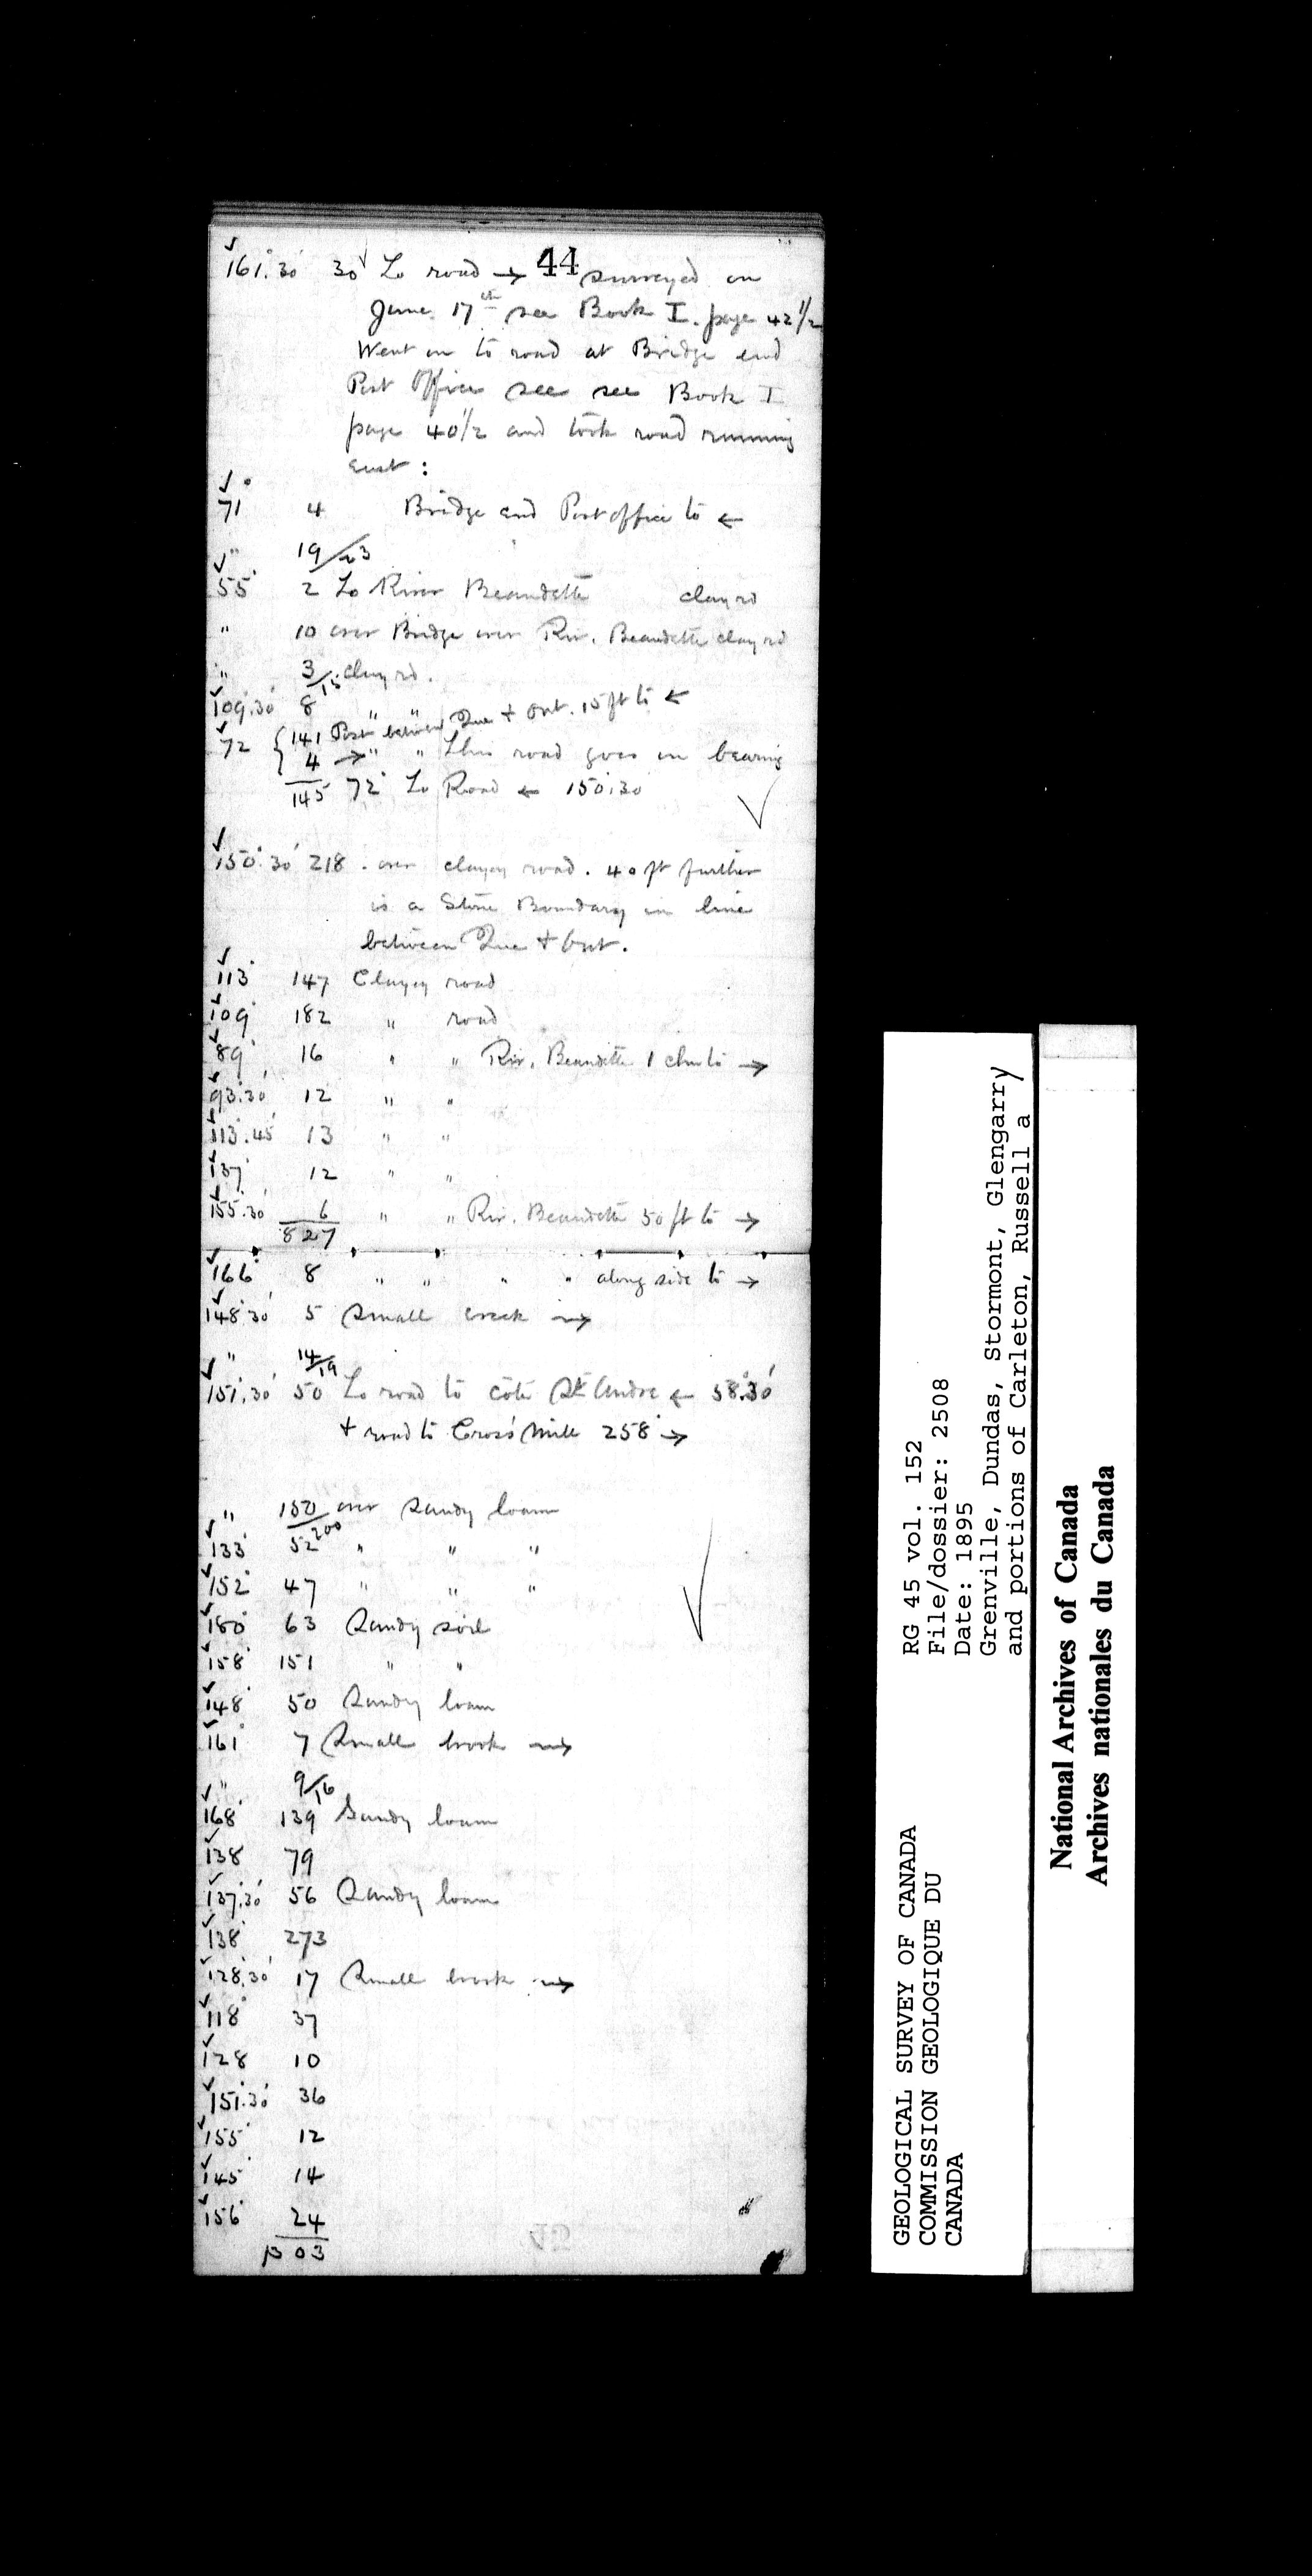 44
✓161°.30' 30 ✓ To road → surveyed on
June 17th see Book I. page 42 1/2
Went on to road at Bridge end
Post Office see see Book I
page 40 1/2 and took road running
east :
✓71° 4 Bridge end Post office to ←
" 19/23
✓55° 2 To River Beaudette clay rd
" 10 over Bridge over Riv. Beaudette clay rd
" 3/15 clay rd.
✓109°.30' 8 " "
✓72° { 141 Post between Que + Ont. 15 ft to ←
4 → " " This road goes on bearing
145 72° To Road ← 150°.30 ✓
✓150°.30' 218 . over clayey road. 40 ft further
is a Stone Boundary in line
between Que + Ont.
✓113° 147 Clayey road
✓109° 182 " road
✓89° 16 " " Riv. Beaudette 1 chn to →
✓93°.30' 12 " "
✓113°.45' 13 " "
✓137° 12 " "
✓155°.30' 6 " " Riv. Beaudette 50 ft to →
827
✓166° 8 " " " " along side to →
✓148°30' 5 Small creek →
" 14/19
✓151°.30' 50 To road to côte St Andre ← 58°.30'
+ road to Cross' Mills 258° →
" 150/200 over Sandy loam
✓133° 52 " " "
✓152° 47 " " "
✓180° 63 Sandy soil ✓
✓158° 151 " "
✓148° 50 Sandy loam
✓161° 7 Small brook →
" 9/16
✓168° 139 Sandy loam
✓138 79
✓137°.30' 56 Sandy loam
✓138° 273
✓128°.30' 17 Small brook →
✓118° 37
✓128 10
✓151°.30' 36
✓155° 12
✓145° 14
✓156° 24
1303
GEOLOGICAL SURVEY OF CANADA
COMMISSION GEOLOGIQUE DU
CANADA
RG 45 vol. 152
File/dossier: 2508
Date: 1895
Grenville, Dundas, Stormont, Glengarry
and portions of Carleton, Russell a
National Archives of Canada
Archives nationales du Canada